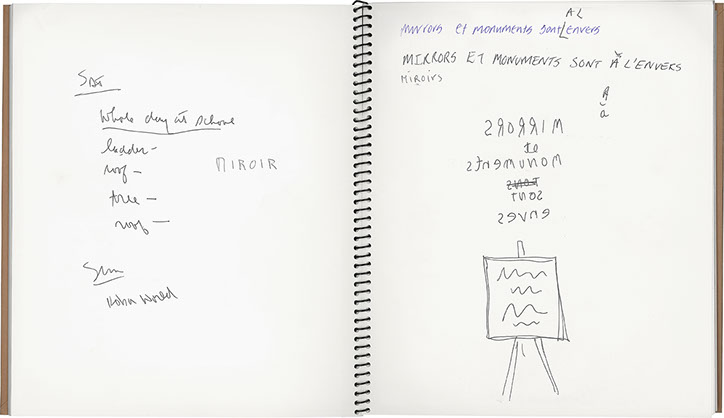 Sat
Whole day at school
ladder –
roof –
MIROIR
tree –
roof –
Sun
World
A L
mirrors et monuments sont L'envers
MIRRORS ET MONUMENTS SONT À L'ENVERS
MIROIRS
À
à
MIRRORS
et
MONUMENTS
SONT
SONT
ENVERS